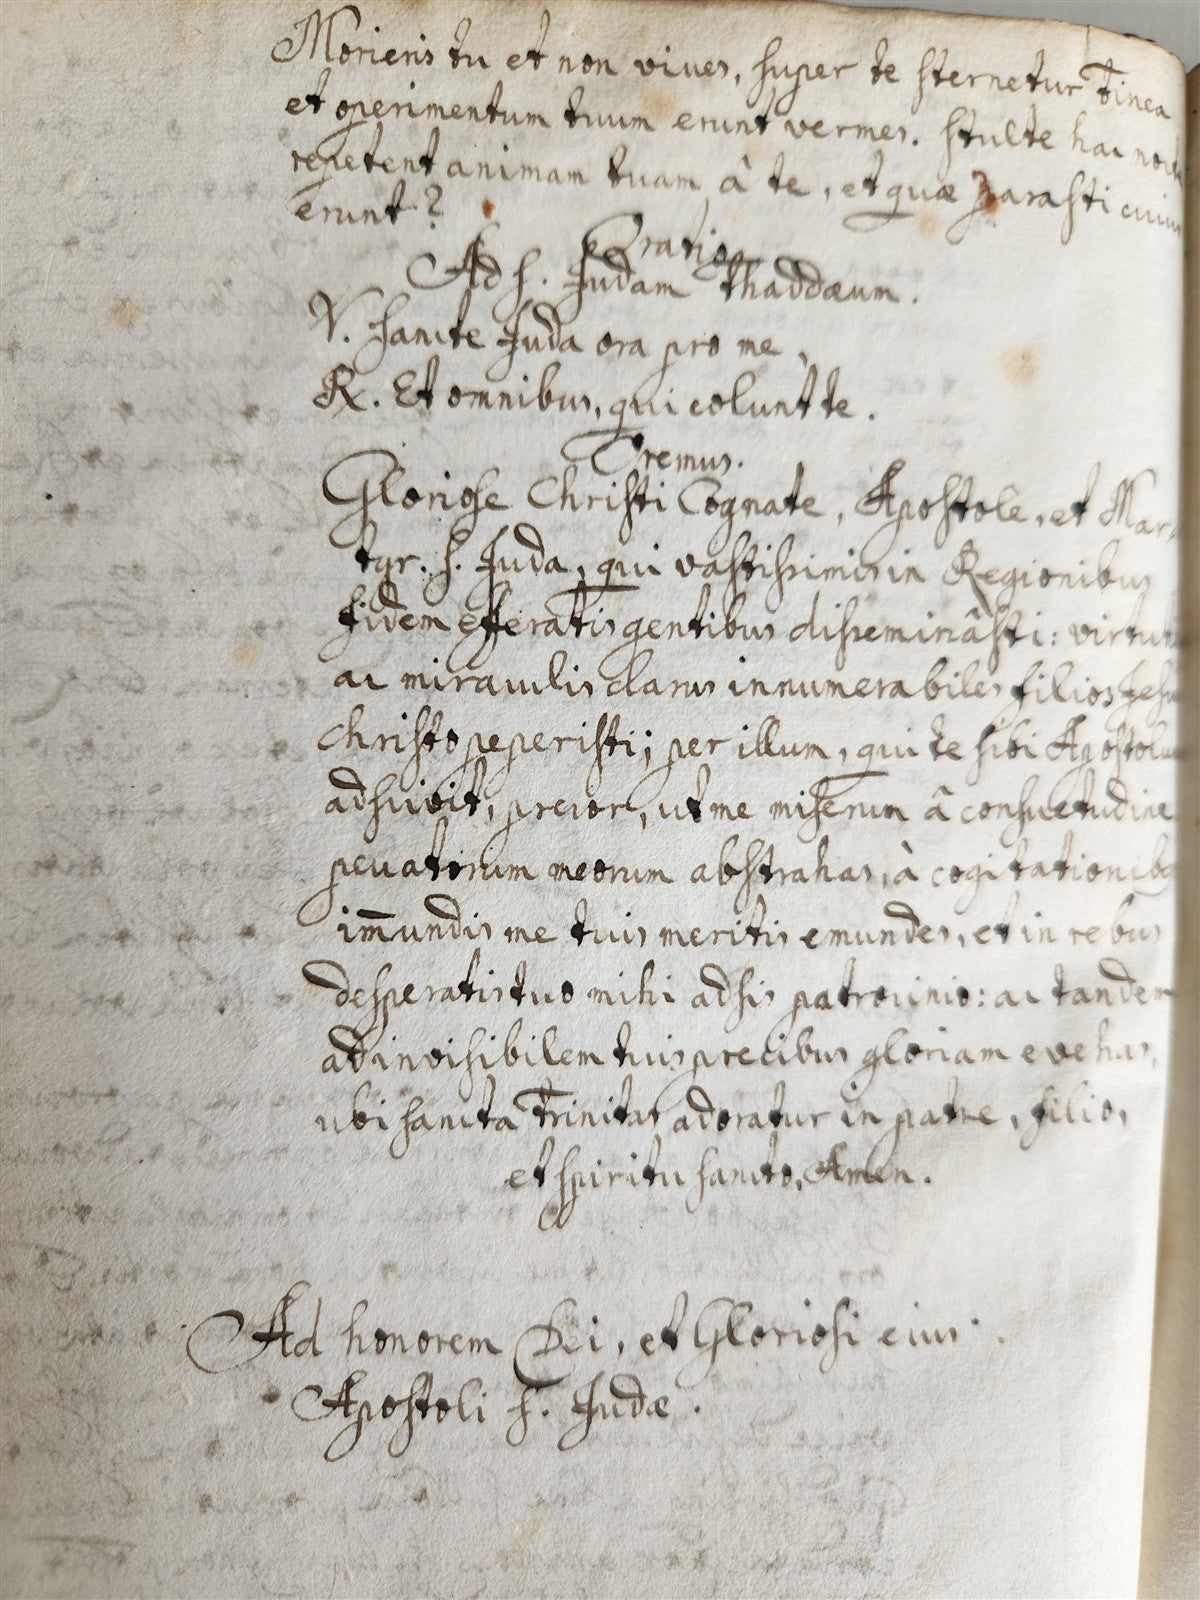 Morieris tu et non vives, super te sternetur Tinea
et operimentum tuum erunt vermes. Stulte hac nocte
repetent animam tuam â te, et quæ parasti cuius
erunt?
Oratio
Ad S. Judam Thaddæum.
V. Sancte Juda ora pro me,
R. Et omnibus, qui colunt te.
Oremus.
Gloriose Christi Cognate, Apostole, et Mar-
tyr. S. Juda, qui vastissimis in Regionibus
fidem efferatis gentibus disseminâsti: virtute
ac miraculis clarus innumerabiles filios Jesu
Christo peperisti; per illum, qui te sibi Apostolum
adscivit, precor, ut me miserum â consuetudine
peccatorum meorum abstrahas, à cogitationibus
im̄undis me tuis meritis emundes, et in rebus
desperatis tuo mihi adsis patrocinio: ac tandem
ad invisibilem tuis precibus gloriam evehas,
ubi sancta Trinitas adoratur in patre, filio,
et spiritu sancto, Amen.
Ad honorem Dei, et Gloriosi eius
Apostoli S. Judæ.